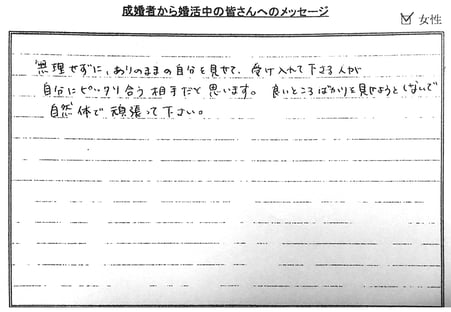 成婚者から婚活中の皆さんへのメッセージ
☑ 女性
無理せずに、ありのままの自分を見せて、受け入れて下さる人が
自分にピッタリ合う相手だと思います。良いところばかりを見せようとしないで
自然体で頑張って下さい。